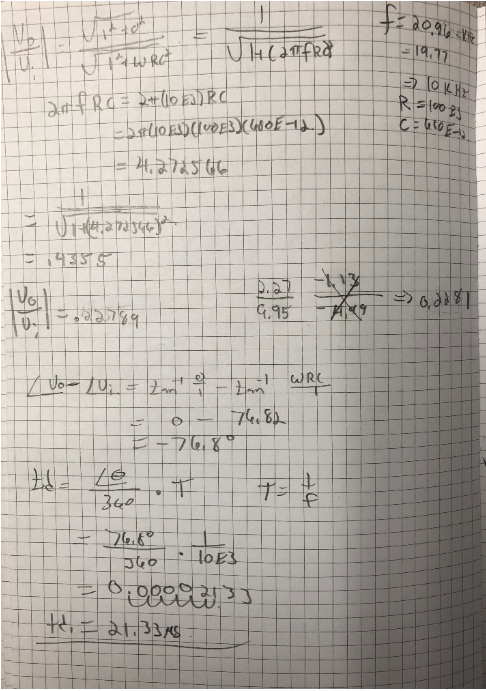 |Vo/Vi| = √(1²+0²) / √(1²+ωRC²) = 1 / √(1+(2πfRC)²)
f = 20.96 kHz
= 19.77
⇒ 10 kHz
R = 100E3
C = 680E-12
2πfRC = 2π(10E3)RC
= 2π(10E3)(100E3)(680E-12)
= 4.272566
= 1 / √(1+(4.272566)²)
= .4355
|Vo/Vi| = .22789
2.27/9.95 -1.13/-4.49 ⇒ 0.2281
∠Vo - ∠Vi = tan⁻¹ 0/1 - tan⁻¹ ωRC/1
= 0 - 76.82
= -76.8°
td = ∠θ/360 · T T = 1/f
= 76.8°/360 · 1/10E3
= 0.00002133
td. = 21.33μs